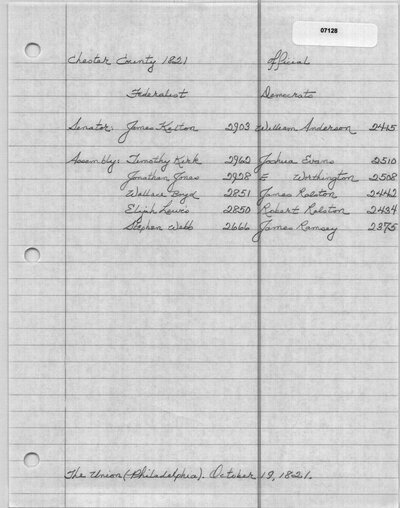 07128
Chester County 1821 Official
Federalist Democrats
Senator: James Kelton 2903 William Anderson 2415
Assembly: Timothy Kirk 2962 Joshua Evans 2510
Jonathan Jones 2928 E Worthington 2508
Wallace Boyd 2851 James Ralston 2442
Elijah Lewis 2850 Robert Ralston 2434
Stephen Webb 2666 James Ramsey 2375
The Union (Philadelphia). October 19, 1821.